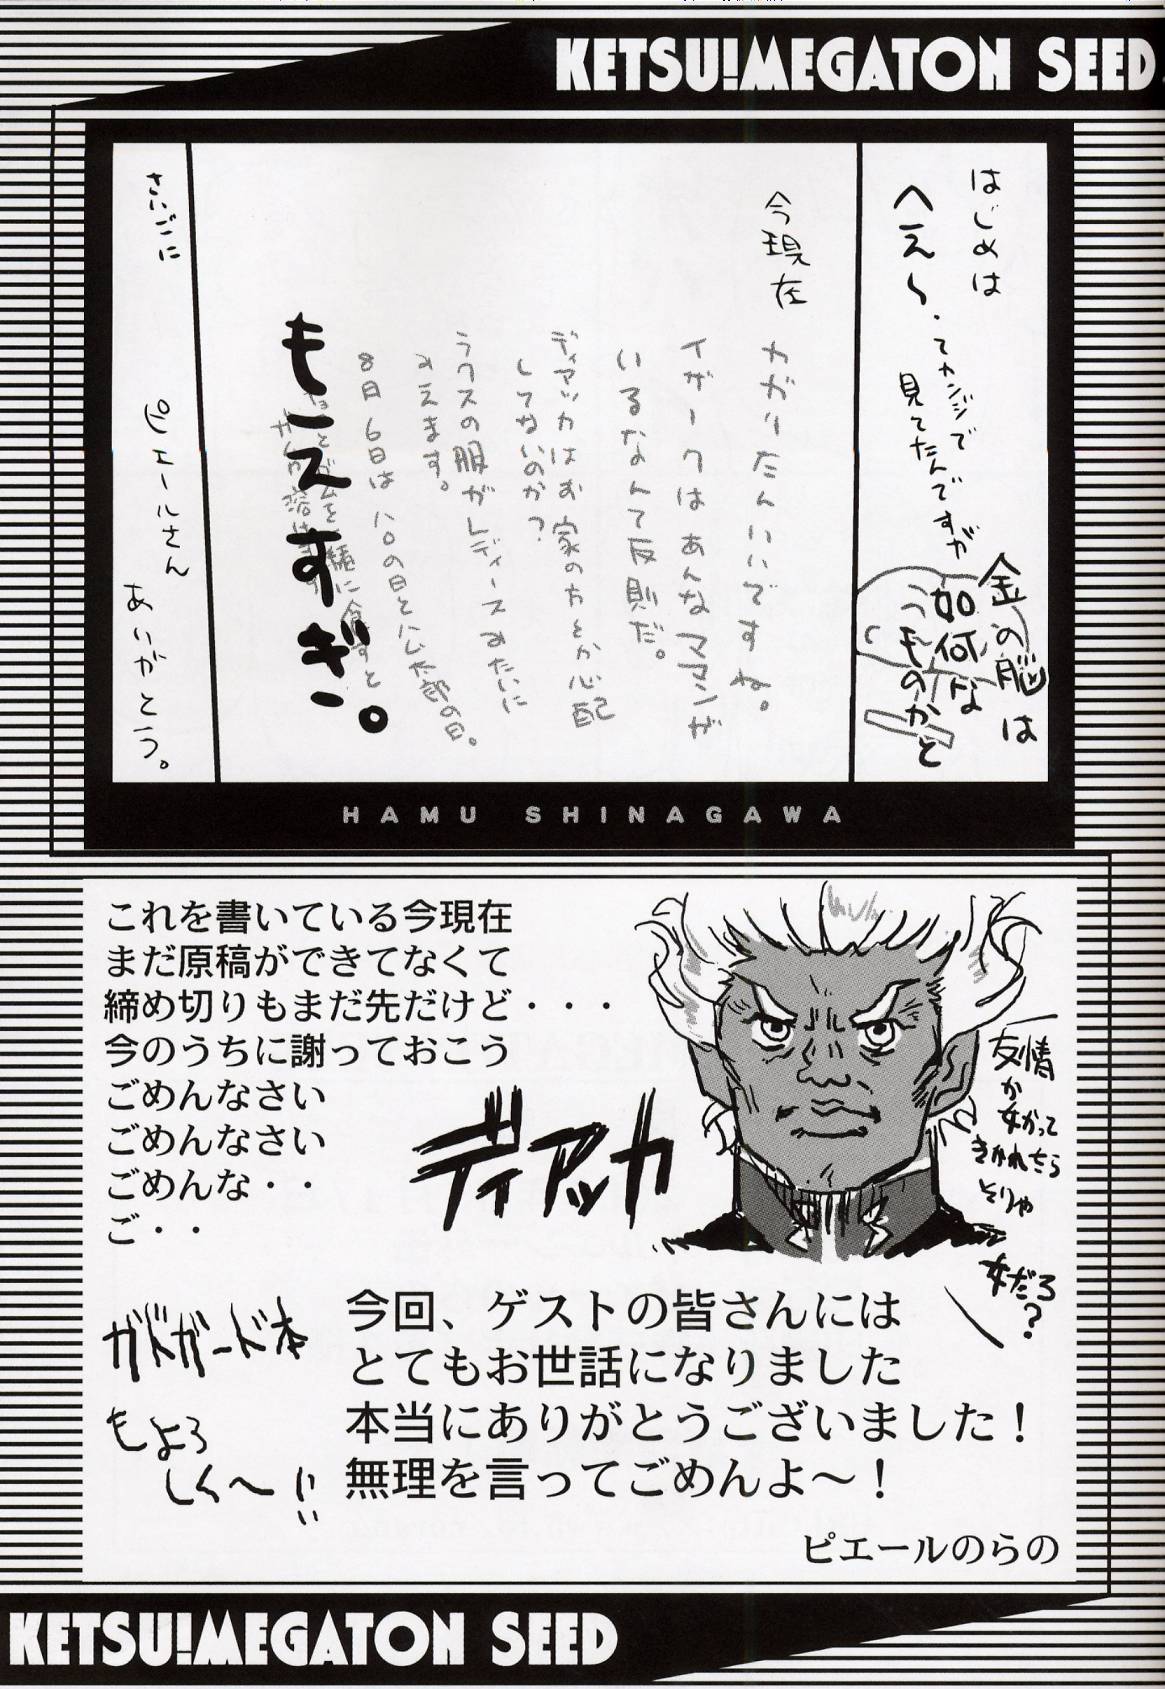 KETSU!MEGATON SEED
はじめは
へえ〜・てカンジで
見てたんですが
金の脳は
如何な
ものかと
今現在
カガリたんいいですね。
イザークはあんなママンが
いるなんて反則だ。
ディアッカはお家の方とか心配
してないのか?
ラクスの服がレディースみたいに
みえます。
8月6日はハロの日とハム太郎の日。
もえすぎ。
さいごに
ピエールさん
ありがとう。
HAMU SHINAGAWA
これを書いている今現在
まだ原稿ができてなくて
締め切りもまだ先だけど・・・
今のうちに謝っておこう
ごめんなさい
ごめんなさい
ごめんな・・
ご・・
ディアッカ
友情
か
女かって
きかれたら
そりゃ
女だろ
?
ガドガード本
もよろ
しく〜!!
今回、ゲストの皆さんには
とてもお世話になりました
本当にありがとうございました!
無理を言ってごめんよ〜!
ピエールのらの
KETSU!MEGATON SEED